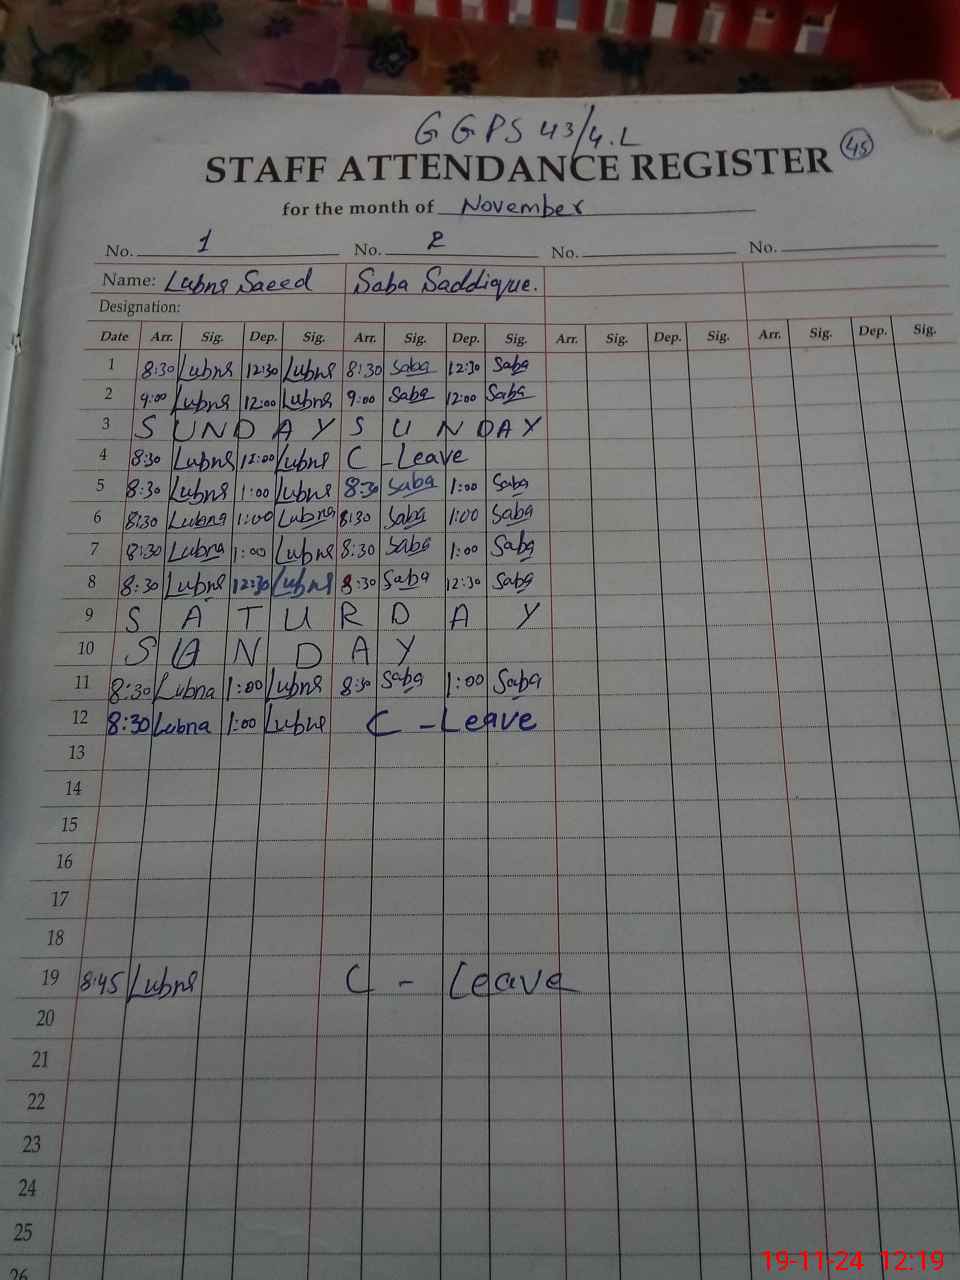 G G P S 43/4.L
STAFF ATTENDANCE REGISTER 45
for the month of November
No. 1 No. 2 No. No.
Name: Lubna Saeed Saba Saddique.
Designation:
Date Arr. Sig. Dep. Sig. Arr. Sig. Dep. Sig. Arr. Sig. Dep. Sig. Arr. Sig. Dep. Sig.
1 8:30 Lubna 12:30 Lubna 8:30 Saba 12:30 Saba
2 9:00 Lubna 12:00 Lubna 9:00 Saba 12:00 Saba
3 S U N D A Y S U N D A Y
4 8:30 Lubna 12:00 Lubna C - Leave
5 8:30 Lubna 1:00 Lubna 8:30 Saba 1:00 Saba
6 8:30 Lubna 1:00 Lubna 8:30 Saba 1:00 Saba
7 8:30 Lubna 1:00 Lubna 8:30 Saba 1:00 Saba
8 8:30 Lubna 12:30 Lubna 8:30 Saba 12:30 Saba
9 S A T U R D A Y
10 S U N D A Y
11 8:30 Lubna 1:00 Lubna 8:30 Saba 1:00 Saba
12 8:30 Lubna 1:00 Lubna C - Leave
13
14
15
16
17
18
19 8:45 Lubna C - Leave
20
21
22
23
24
25
26
19-11-24 12:19